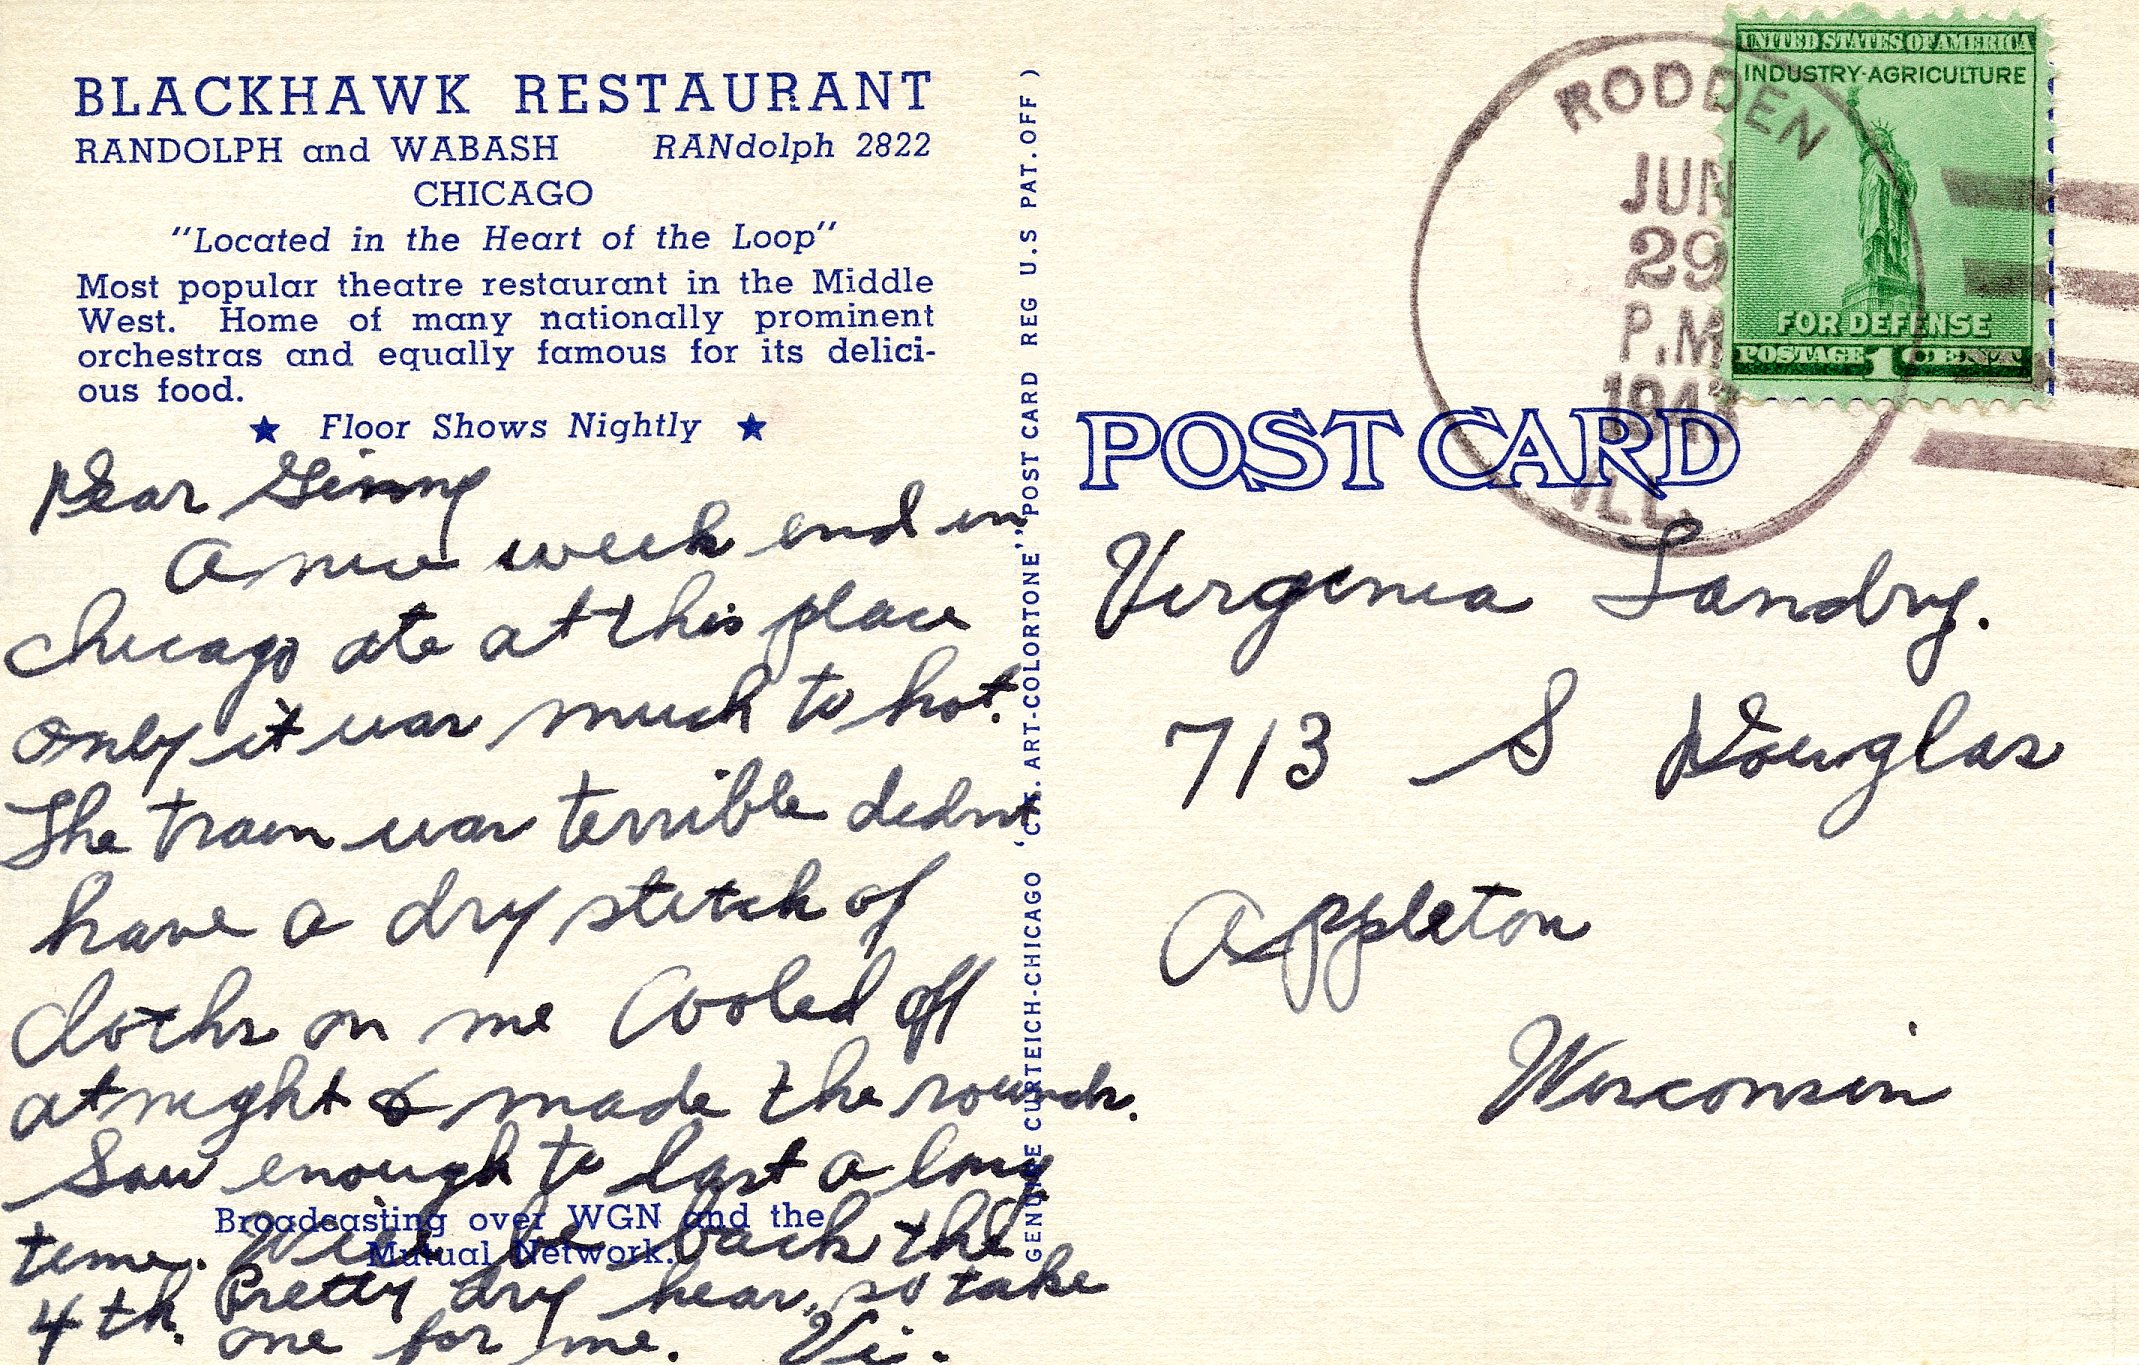 BLACKHAWK RESTAURANT
RANDOLPH and WABASH RANdolph 2822
CHICAGO
"Located in the Heart of the Loop"
Most popular theatre restaurant in the Middle
West. Home of many nationally prominent
orchestras and equally famous for its delici-
ous food.
★ Floor Shows Nightly ★
Dear Ginny
A nice week end in
Chicago ate at this place
only it was much to hot.
The train was terrible didnt
have a dry stitch of
cloths on me Cooled off
at night & made the rounds.
Saw enough to last a long
time. Will be back the
4th. Pretty dry hear, so take
one for me. Vi.
Broadcasting over WGN and the
Mutual Network.
GENUINE CURTEICH-CHICAGO "C.T. ART-COLORTONE" POST CARD REG U.S PAT. OFF )
UNITED STATES OF AMERICA
INDUSTRY-AGRICULTURE
FOR DEFENSE
POSTAGE 1 CENT
RODDEN
JUN
29
P.M
1943
ILL.
POST CARD
Virginia Landry.
713 S Douglas
Appleton
Wisconsin